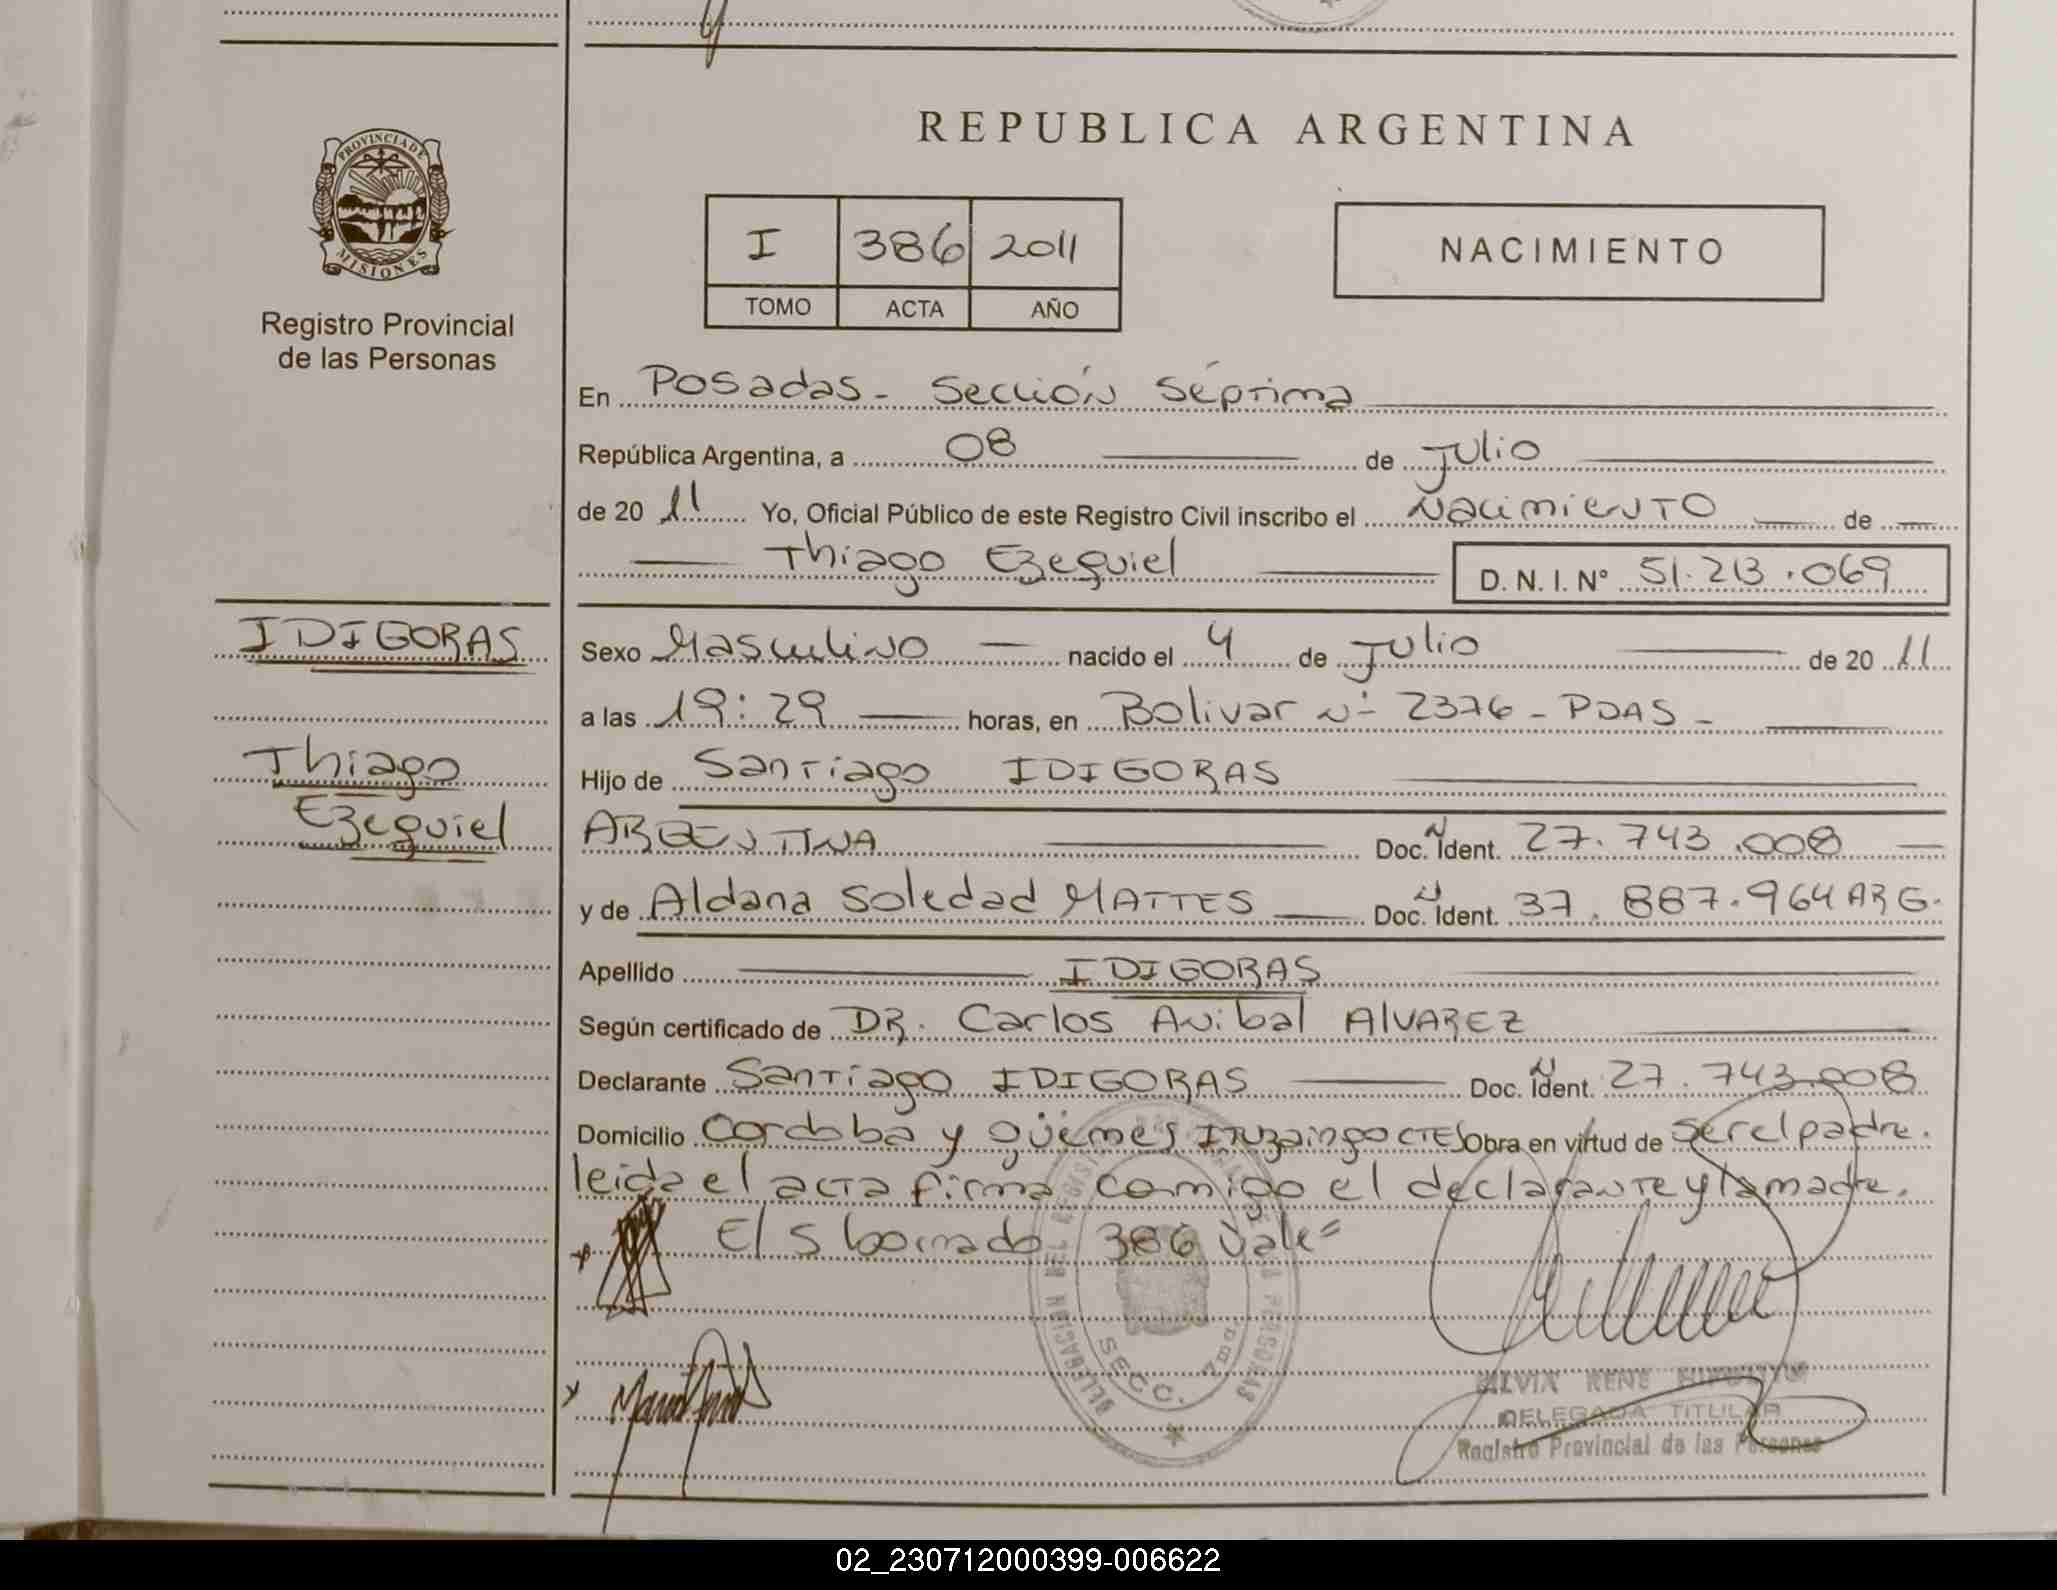 REPUBLICA ARGENTINA
PROVINCIA DE
MISIONES
Registro Provincial
de las Personas
I 386 2011
TOMO ACTA AÑO
NACIMIENTO
En Posadas - Sección Séptima
República Argentina, a 08 de Julio
de 20 11 Yo, Oficial Público de este Registro Civil inscribo el Nacimiento de
Thiago Ezequiel D. N. I. N° 51.213.069
IDIGORAS
Thiago
Ezequiel
Sexo Masculino nacido el 4 de Julio de 20 11
a las 19:29 horas, en Bolivar N° 2376 - PDAS -
Hijo de Santiago IDIGORAS
ARGENTINA Doc. N Ident. 27.743.008
y de Aldana Soledad MATTES Doc. N Ident. 37.887.964 ARG.
Apellido IDIGORAS
Según certificado de DR. Carlos Anibal AlVAREZ
Declarante Santiago IDIGORAS Doc. N Ident. 27.743.008
Domicilio Cordoba y güemes ITuzaingo CTES Obra en virtud de ser el padre.
leida el acta firma conmigo el declarante y la madre.
El S borrado 386 Vale =
DELEGACION DEL REGISTRO
PERSONAS
SECC. 7ma
SILVIA RENE
DELEGADA TITULAR
Registro Provincial de las Personas
02_230712000399-006622